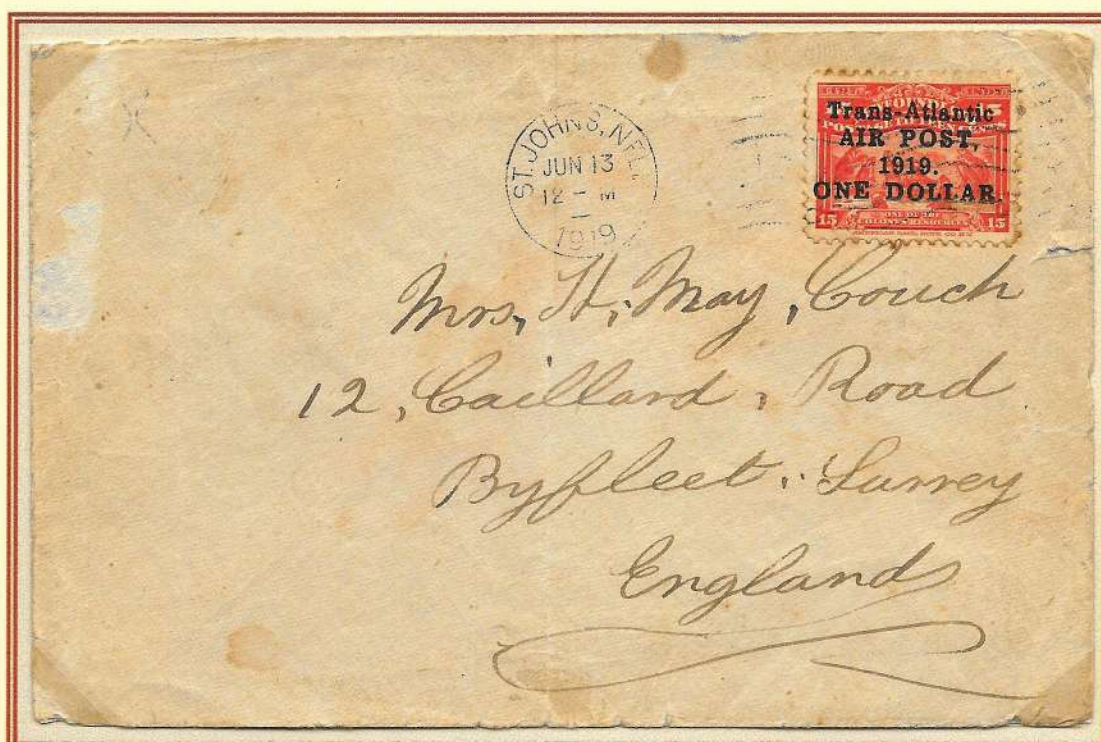 ST. JOHN'S, NFL.
JUN 13
12 - M
1919
Trans-Atlantic
AIR POST,
1919.
ONE DOLLAR.
15 ONE OF THE COLONY'S RESOURCES 15
Mrs, H, May, Couch
12, Caillard, Road
Byfleet, Surrey
England